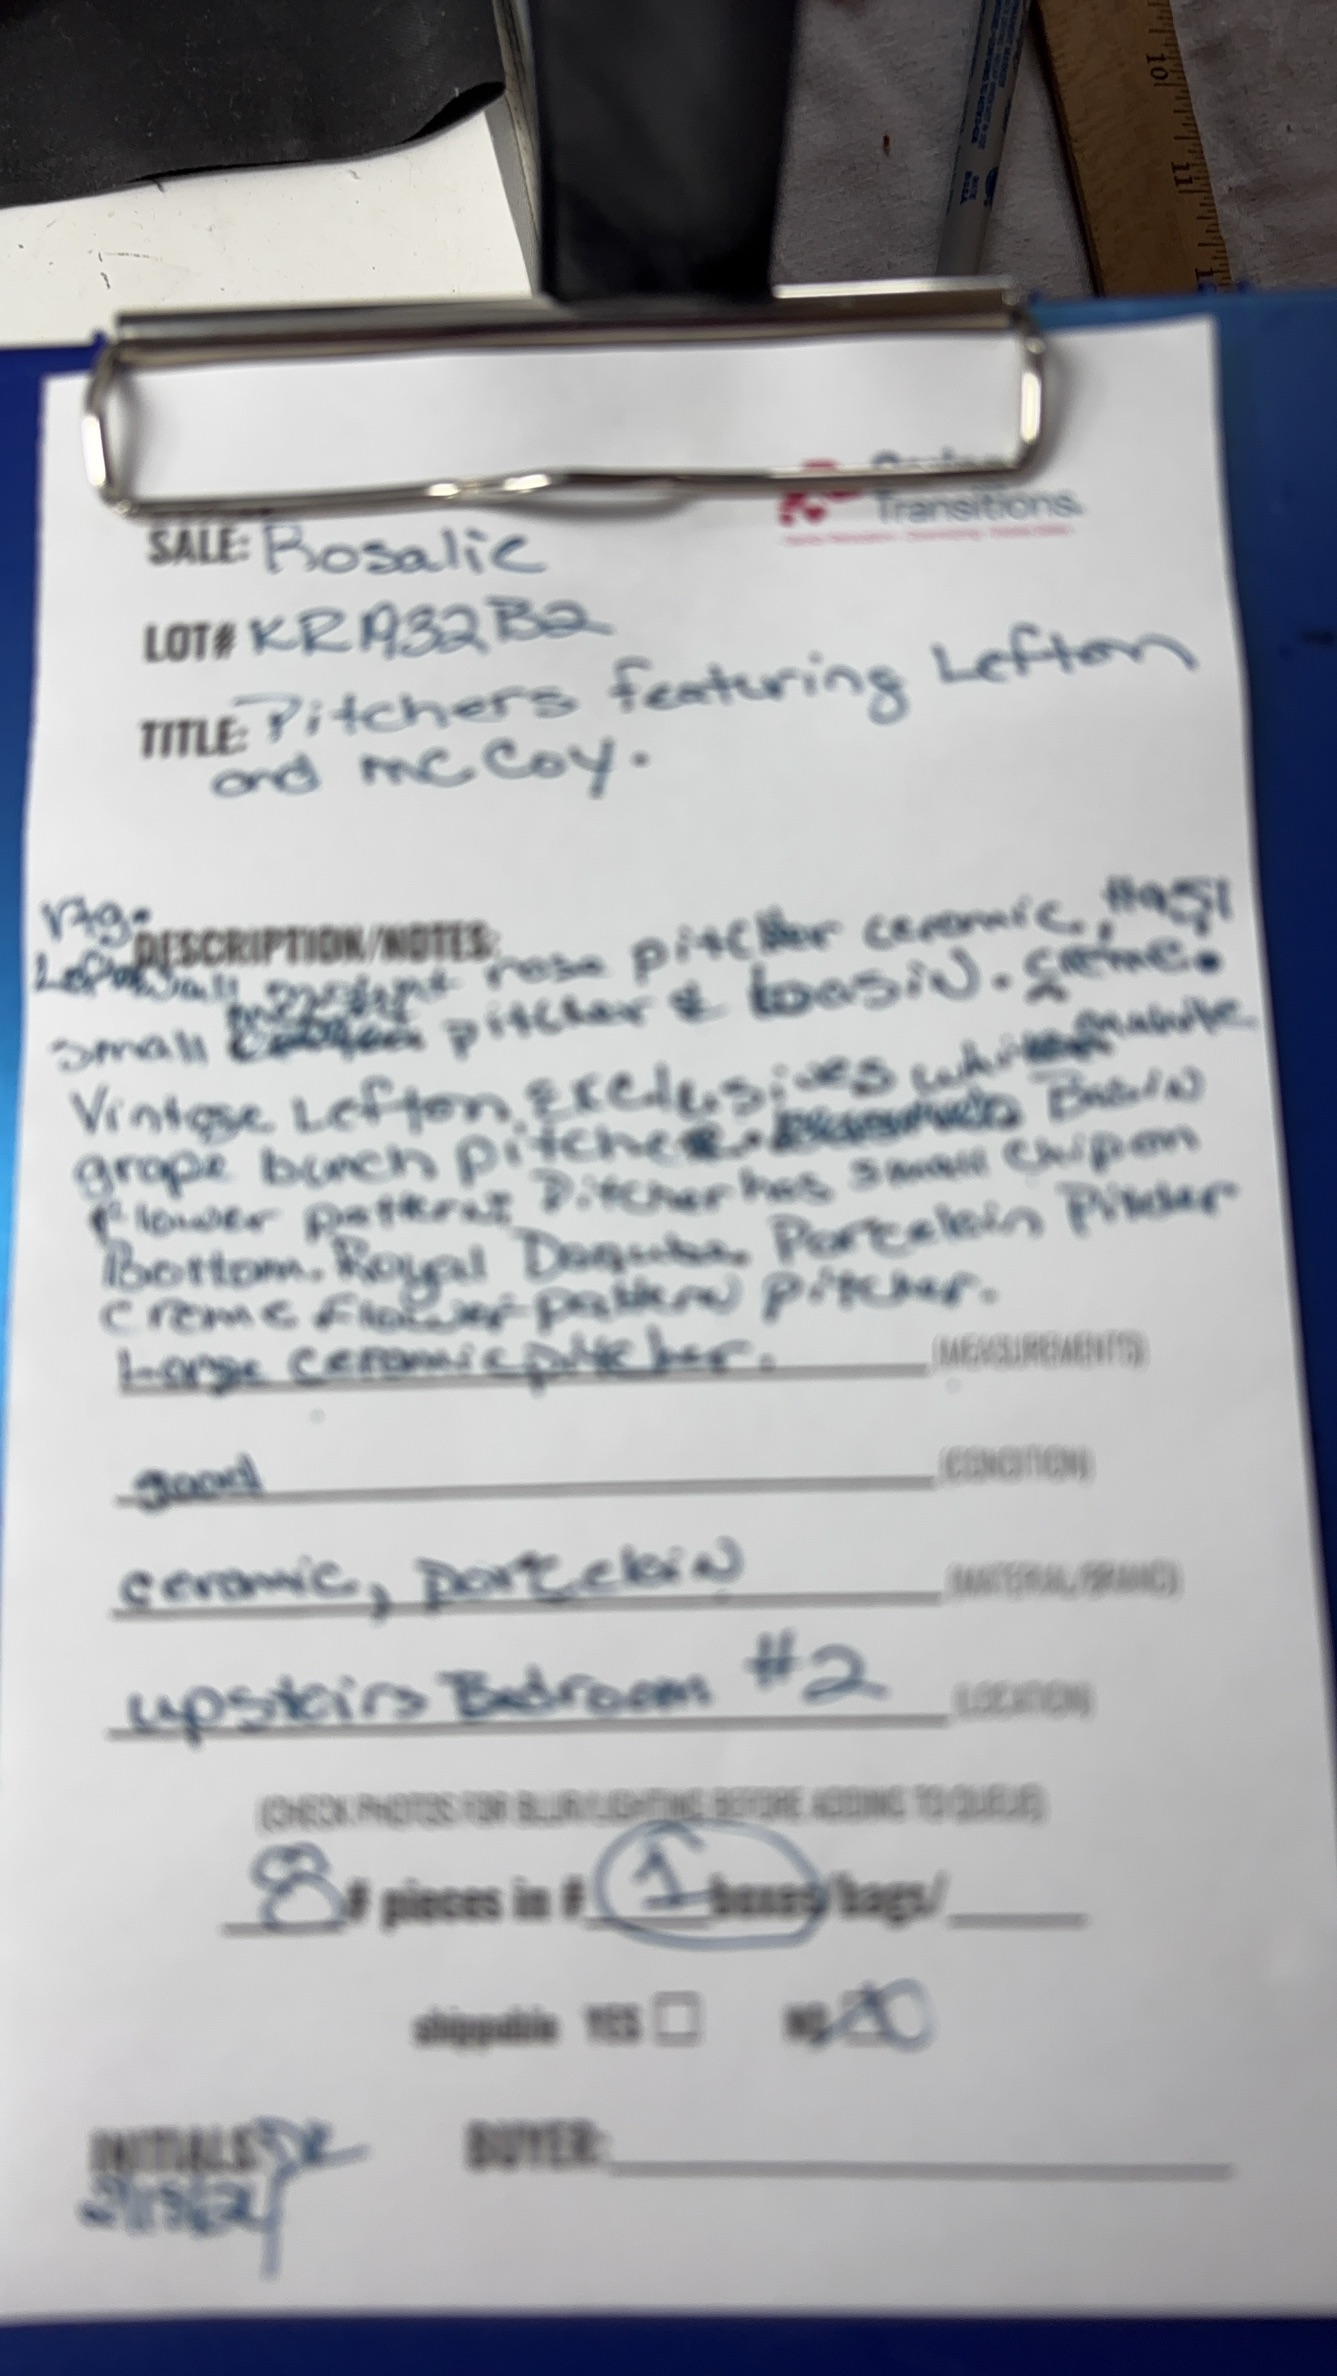 10
11
Caring
Transitions.
SALE: Rosalie
LOT# KRA32B2
TITLE: Pitchers featuring Lefton
and McCoy.
DESCRIPTION/NOTES:
rose pitcher ceramic, #951
small pitcher & basin. creme.
Vintage Lefton Exclusives white
grape bunch pitcher. Basin
flower pattern Pitcher has small chip on
Bottom. Royal Danube. Porcelain Pitcher
creme flower pattern pitcher.
Large ceramic pitcher. (MEASUREMENTS)
good (CONDITION)
ceramic, porcelain (MATERIAL/BRAND)
upstairs Bedroom #2 (LOCATION)
(CHECK PHOTOS FOR BLUR/LIGHTING BEFORE ADDING TO QUEUE)
8 # pieces in # 1 boxes/bags/
shippable YES NO
INITIALS BUYER: